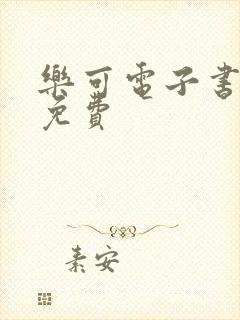 樂可電子書
免費
素安